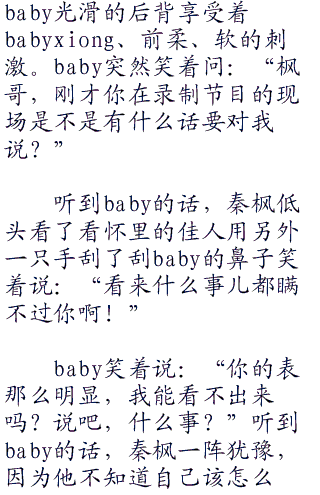 baby光滑的后背享受着
babyxiong、前柔、软的刺
激。baby突然笑着问：“枫
哥，刚才你在录制节目的现
场是不是有什么话要对我
说？”
听到baby的话，秦枫低
头看了看怀里的佳人用另外
一只手刮了刮baby的鼻子笑
着说：“看来什么事儿都瞒
不过你啊！”
baby笑着说：“你的表
那么明显，我能看不出来
吗？说吧，什么事？”听到
baby的话，秦枫一阵犹豫，
因为他不知道自己该怎么